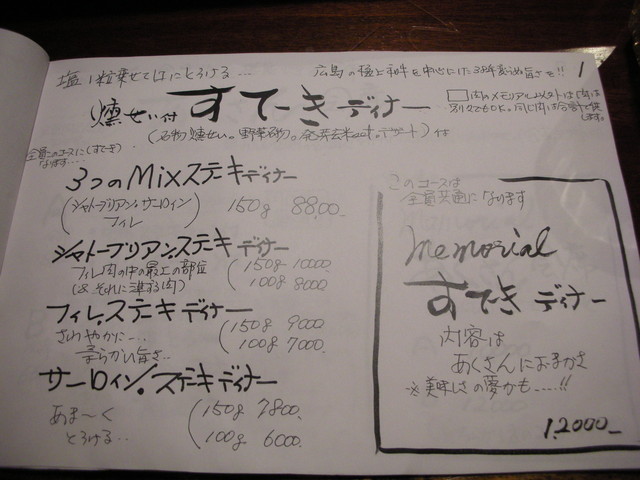 塩1粒乗せて口にとろける…
広島の極上和牛を中心にした38年変らぬ旨さを!! 1
燻せい付 すてーきディナー
(名物燻せい。野菜。発芽玄米。デザート)付
内のメモリアルコース
全員
3つのMixステーキディナー
(シャトーブリアン・サーロイン フィレ) 150g 8800_
シャトーブリアン.ステーキディナー
フィレ肉の中の最上の部位 (150g 10000.
(& それに準ずる肉) 100g 8000
フィレ.ステーキディナー
さわやかに… (150g 9000
柔らかい旨さ… 100g 7000.
サーロイン.ステーキディナー
あま〜く (150g 7800.
とろける… (100g 6000.
このコースは
全員共通になります
memorial
すてーきディナー
内容は
あくさんにおまかせ
※美味しさの夢かも……!!
12000_